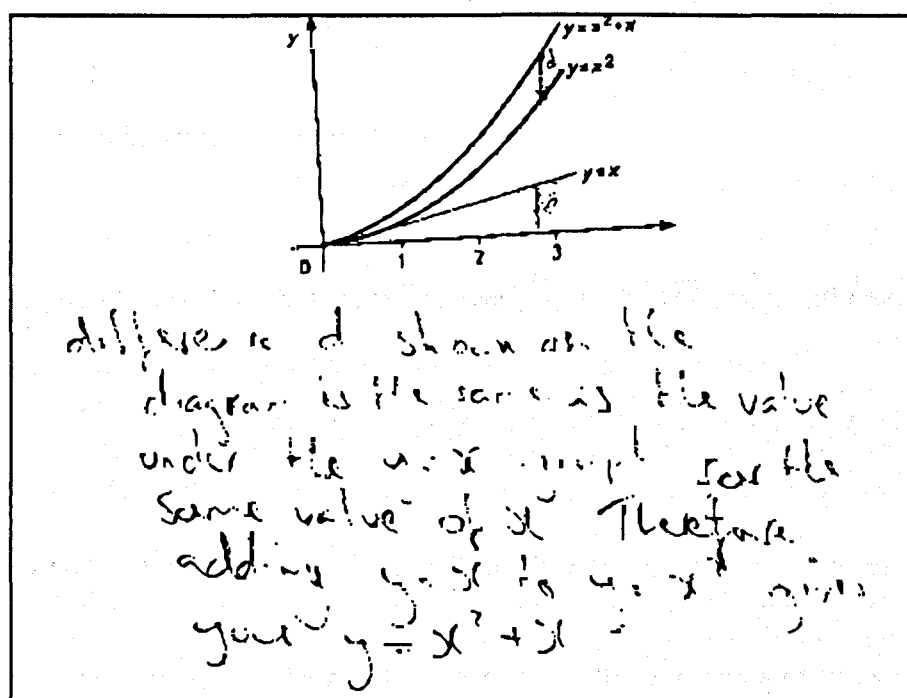 y
y=x²+x
d
y=x²
y=x
0 1 2 3
difference d shown on the
diagram is the same as the value
under the y=x graph for the
same value of x Therefore
adding y=x to y=x² gives
you y=x²+x